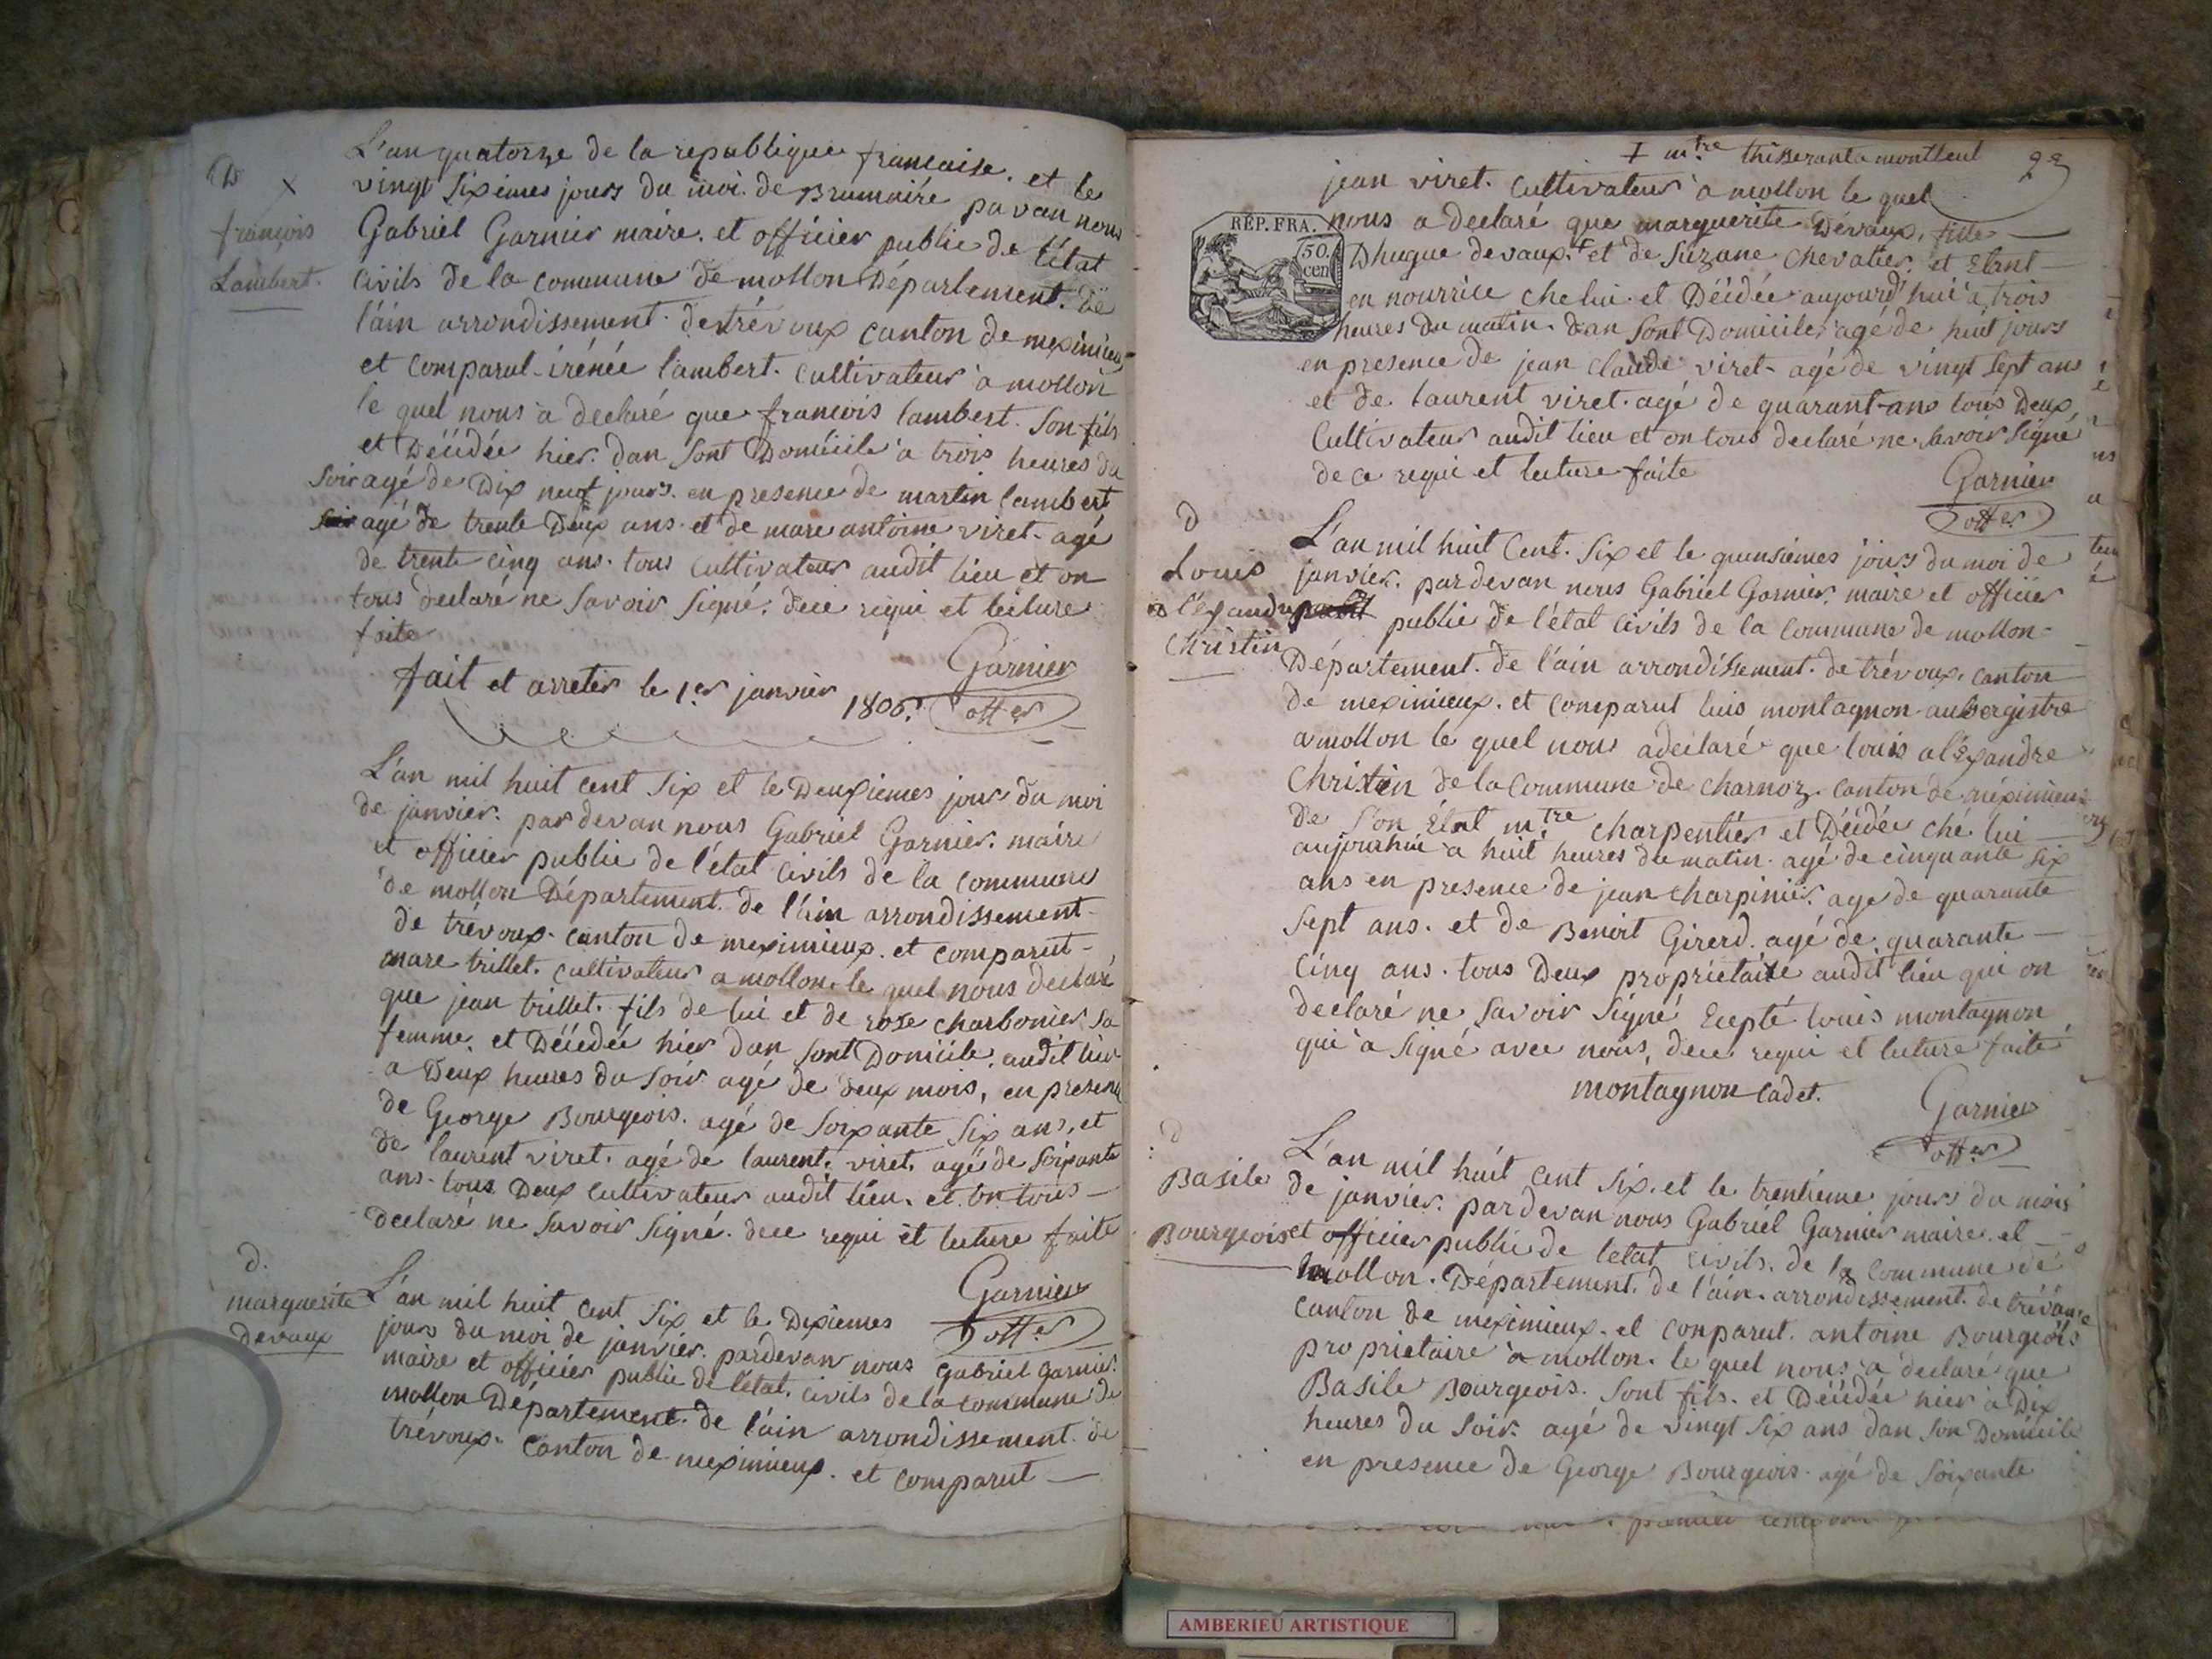 D
X
françois
Lambert.
L'an quatorze de la republique francaise. et le
vingt Sixiemes jours du moi de Brumaire par van nous
Gabriel Garnier maire. et officier public de l'état
Civils de la Commune de mollon Département. de
l'ain arrondissement de trévoux canton de meximieux
et Comparut irénée lambert. Cultivateur a mollon
le quel nous a declaré que francois lambert. Son fils
et Décidée hier. dan Sont Domicile a trois heures du
Soir agé de Dix neuf jours. en presence de martin lambert
agé de trente Deux ans et de marc antoine viret. agé
de trente cinq ans. tous Cultivateur audit lieu et on
tous declaré ne Savoir Signé. dece requi et lecture
faite
Garnier
off er
fait et arreter le 1.er janvier 1806.
L'an mil huit cent Six et le Deuxiemes jour du moi
de janvier. par devan nous Gabriel Garnier. maire
et officier public de l'état Civils de la Commune
de mollon Département de l'ain arrondissement
de trévoux. canton de meximieux. et comparut
marc trillet. cultivateur a mollon. le quel nous declaré
que jean trillet. fils de lui et de rose charbonier Sa
femme. et Décédée hier dan Sont Domicile. audit lieu
a Deux heures du Soir agé de deux mois, en presence
de George Bourgeois. agé de Soixante Six ans, et
de laurent viret. agé de laurent. viret. agé de Soixante
ans. tous Deux Cultivateur audit lieu. et on tous
declaré ne Savoir Signé. dece requi et lecture faite
Garnier
off er
d.
marguerite
devaux
L'an mil huit Cent Six et le Dixiemes
jours du moi de janvier. pardevan nous Gabriel Garnier
maire et officier public de l'état. Civils de la Commune de
mollon Département de l'ain arrondissement de
trévoux. Canton de meximieux. et Comparut
I m.tre thisseranta montluel
22
jean viret. Cultivateur a mollon le quel
REP. FRA.
50.
cen
nous a declaré que marguerite Dévaux, fille
Dhugue devaux. I et de Suzane chevalier. et Etant
en nourrice che lui. et Décidée aujourd'hui a trois
heures du matin. dan Sont Domicile, agé de huit jours
en presence de jean Claude viret. agé de vingt Sept ans
et de laurent viret. agé de quarant ans tous Deux
Cultivateur audit lieu et on tous declaré ne Savoir Signé
de ce requi et lecture faite
Garnier
off er
d
Louis
alexandre
Christin
L'an mil huit Cent. Six et le quinsiemes jours du moi de
janvier. par devan nous Gabriel Garnier. maire et officier
public de l'état Civils de la Commune de mollon
Département. de l'ain arrondissement. de trévoux. canton
de meximieux. et Comparut luis montagnon aubergistre
a mollon le quel nous a declaré que louis alexandre
Christin de la Commune de Charnoz. Canton de méximieux
de Son Etat m.tre charpentier et Décidée ché lui
aujourhui a huit heures du matin. agé de cinquante Six
ans en presence de jean charpinier. age de quarante
Sept ans. et de Benoit Girerd. agé de quarante
Cinq ans. tous Deux proprietaire audit lieu qui on
declaré ne Savoir Signé Ecepté louis montagnon
qui a Signé avec nous, dece requi et lecture faite
montagnon Cadet.
Garnier
off er
d
Basile
Bourgeois
L'an mil huit Cent Six. et le trentieme jours du mois
de janvier. par devan nous Gabriel Garnier maire. et
et officier public de letat civils. de la Commune de
mollon. Département. de l'ain. arrondissement. de trévoux
Canton de meximieux. et Conparut. antoine Bourgeois
proprietaire a mollon. le quel nous a declaré que
Basile Bourgeois. Sont fils. et Décidée hier a Dix
heures du Soir. agé de vingt Six ans dan Son Domicile
en presence de George Bourgeois agé de Soixante
AMBERIEU ARTISTIQUE